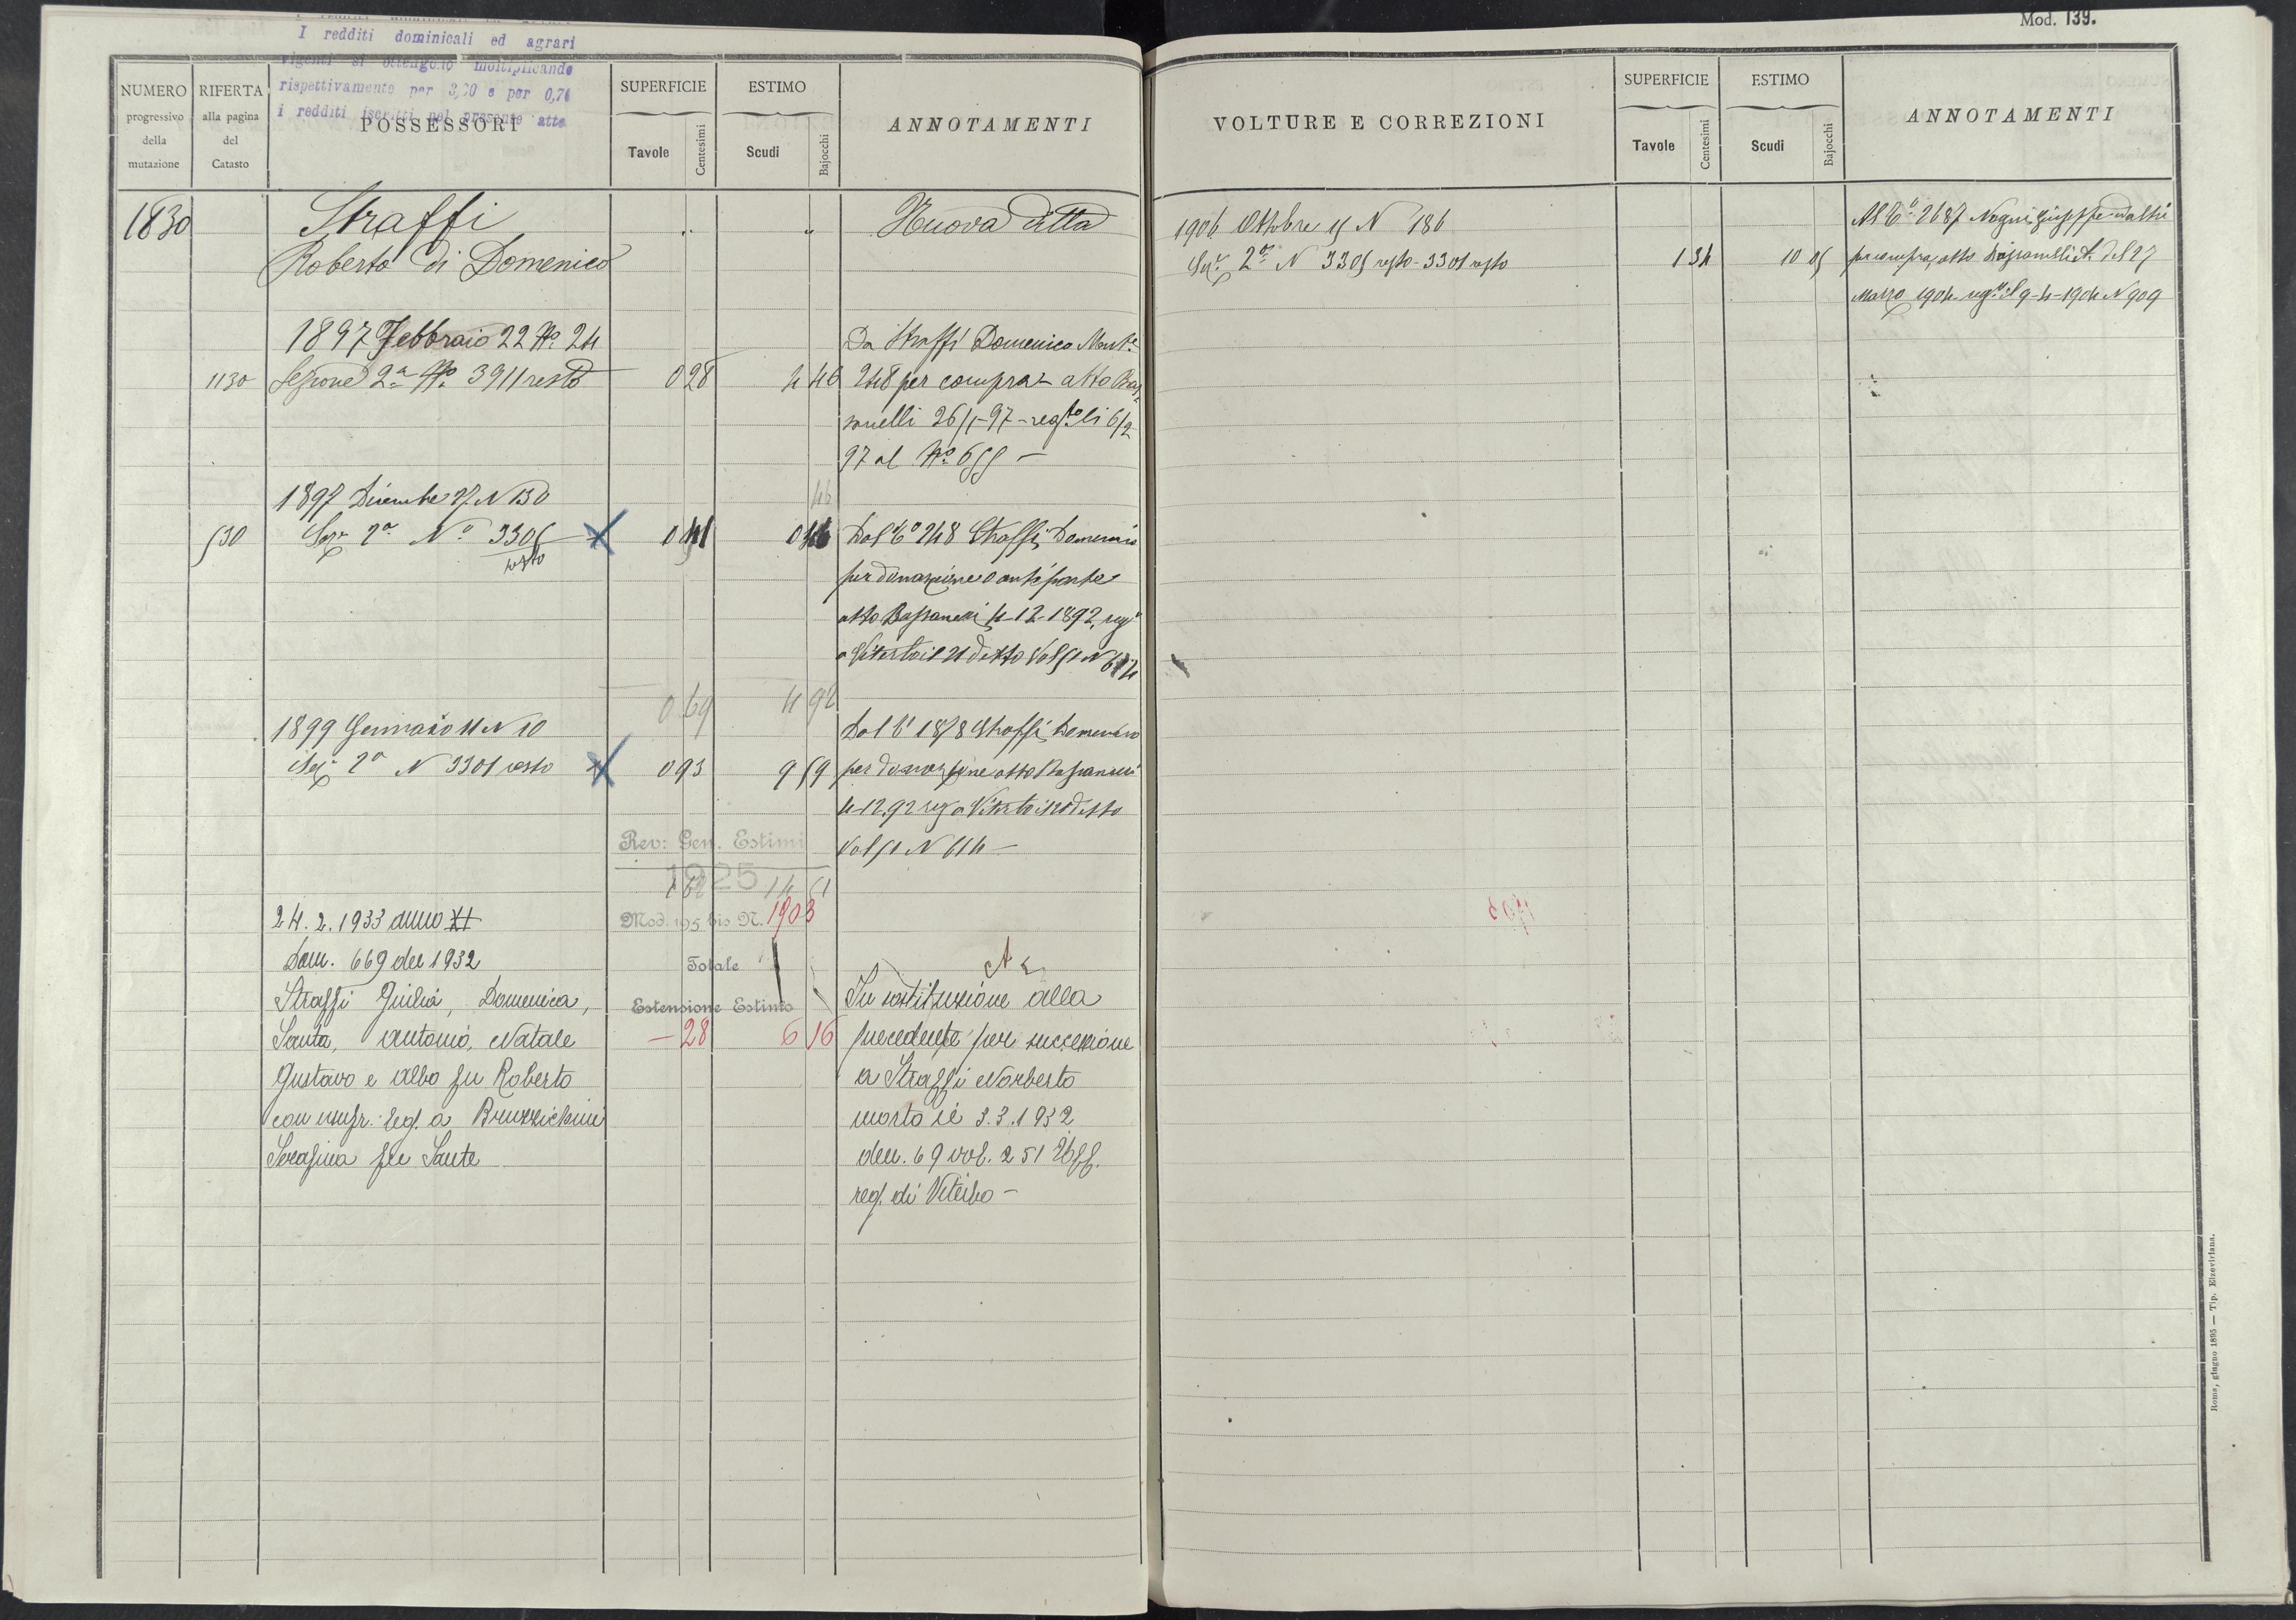 Mod. 139.
I redditi dominicali ed agrari
vigenti si ottengono moltiplicando
rispettivamente per 3,20 e per 0,76
i redditi iscritti nel presente atto
NUMERO progressivo della mutazione
RIFERTA alla pagina del Catasto
POSSESSORI
SUPERFICIE
Tavole
Centesimi
ESTIMO
Scudi
Bajocchi
ANNOTAMENTI
1830
Straffi
Roberto di Domenico
Nuova ditta
1897 Febbraio 22 No. 24
1130 Sezione 2a No. 3911 resto 0 28 4 46
Da Straffi Domenico
248 per compra atto Bas
sanelli 26/1-97 - regto li 6/2
97 al No 655 -
1897 Dicembre 27 N 130
530 Sez. 2a No 3305 resto 0 41 0 46
46
Dal 248 Straffi Domenico
per donazione
atto Bassanelli 4-12-1892, reg
a Viterbo il 21 detto Vol 51 N 614
0 69 4 92
1899 Gennaio 11 N 10
Sez 2a N 3301 resto 0 93 9 59
Dal 1878 Straffi Domenico
per donazione atto Bassanelli
4-12.92 reg a Viterbo detto
Vol 51 N 614 -
Rev: Gen. Estimi
1925
1 62 14 51
Mod. 195 bis N. 1903
Totale
Estensione Estimo
— 28 6 16
24. 2. 1933 anno XI
Dom. 669 del 1932
Straffi Giulia, Domenica,
Santa, Antonio, Natale
Gustavo e Albo fu Roberto
con usufr. leg. a Bruzzichini
Serafina fu Sante
In sostituzione alla
precedente per successione
a Straffi Norberto
morto il 3.3.1932
den. 69 vol. 251 Uff.
reg. di Viterbo -
VOLTURE E CORREZIONI
SUPERFICIE
Tavole
Centesimi
ESTIMO
Scudi
Bajocchi
ANNOTAMENTI
1906 Ottobre 15 N 186
Sez. 2a N 3305 resto - 3301 resto 1 34 10 05
Al 2687 Giuseppe
per compra, atto Bassanelli A. del 27
Marzo 1904 reg. il 9-4-1904 N 909
Roma, giugno 1895 — Tip. Elzeviriana.